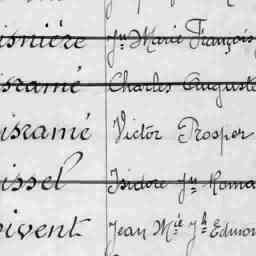 isnière Jn Marie François
isramé Charles Auguste
isramé Victor Prosper
issel Isidore Jn Roma
oivent Jean Mie Jh Edmon